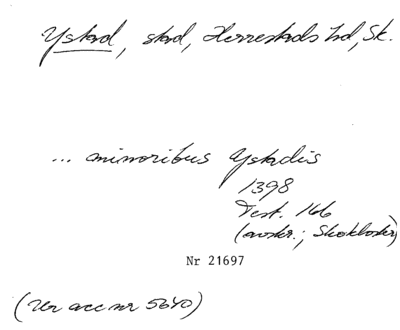 Ystad, stad, Herrestads hd, Sk.
... minoribus Ystadis
1398
Test. 166
(avskr.; Skokloster)
Nr 21697
(Ur acc nr 5640)